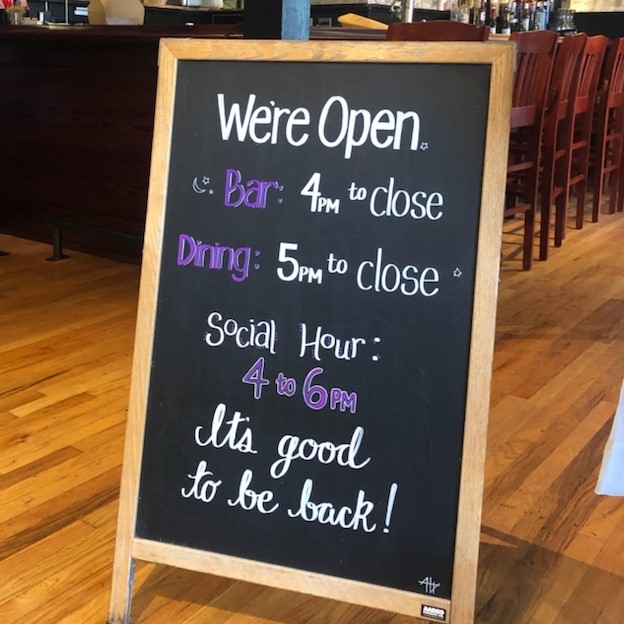 We're Open
Bar: 4PM to close
Dining: 5PM to close
Social Hour:
4 to 6PM
It's good
to be back!